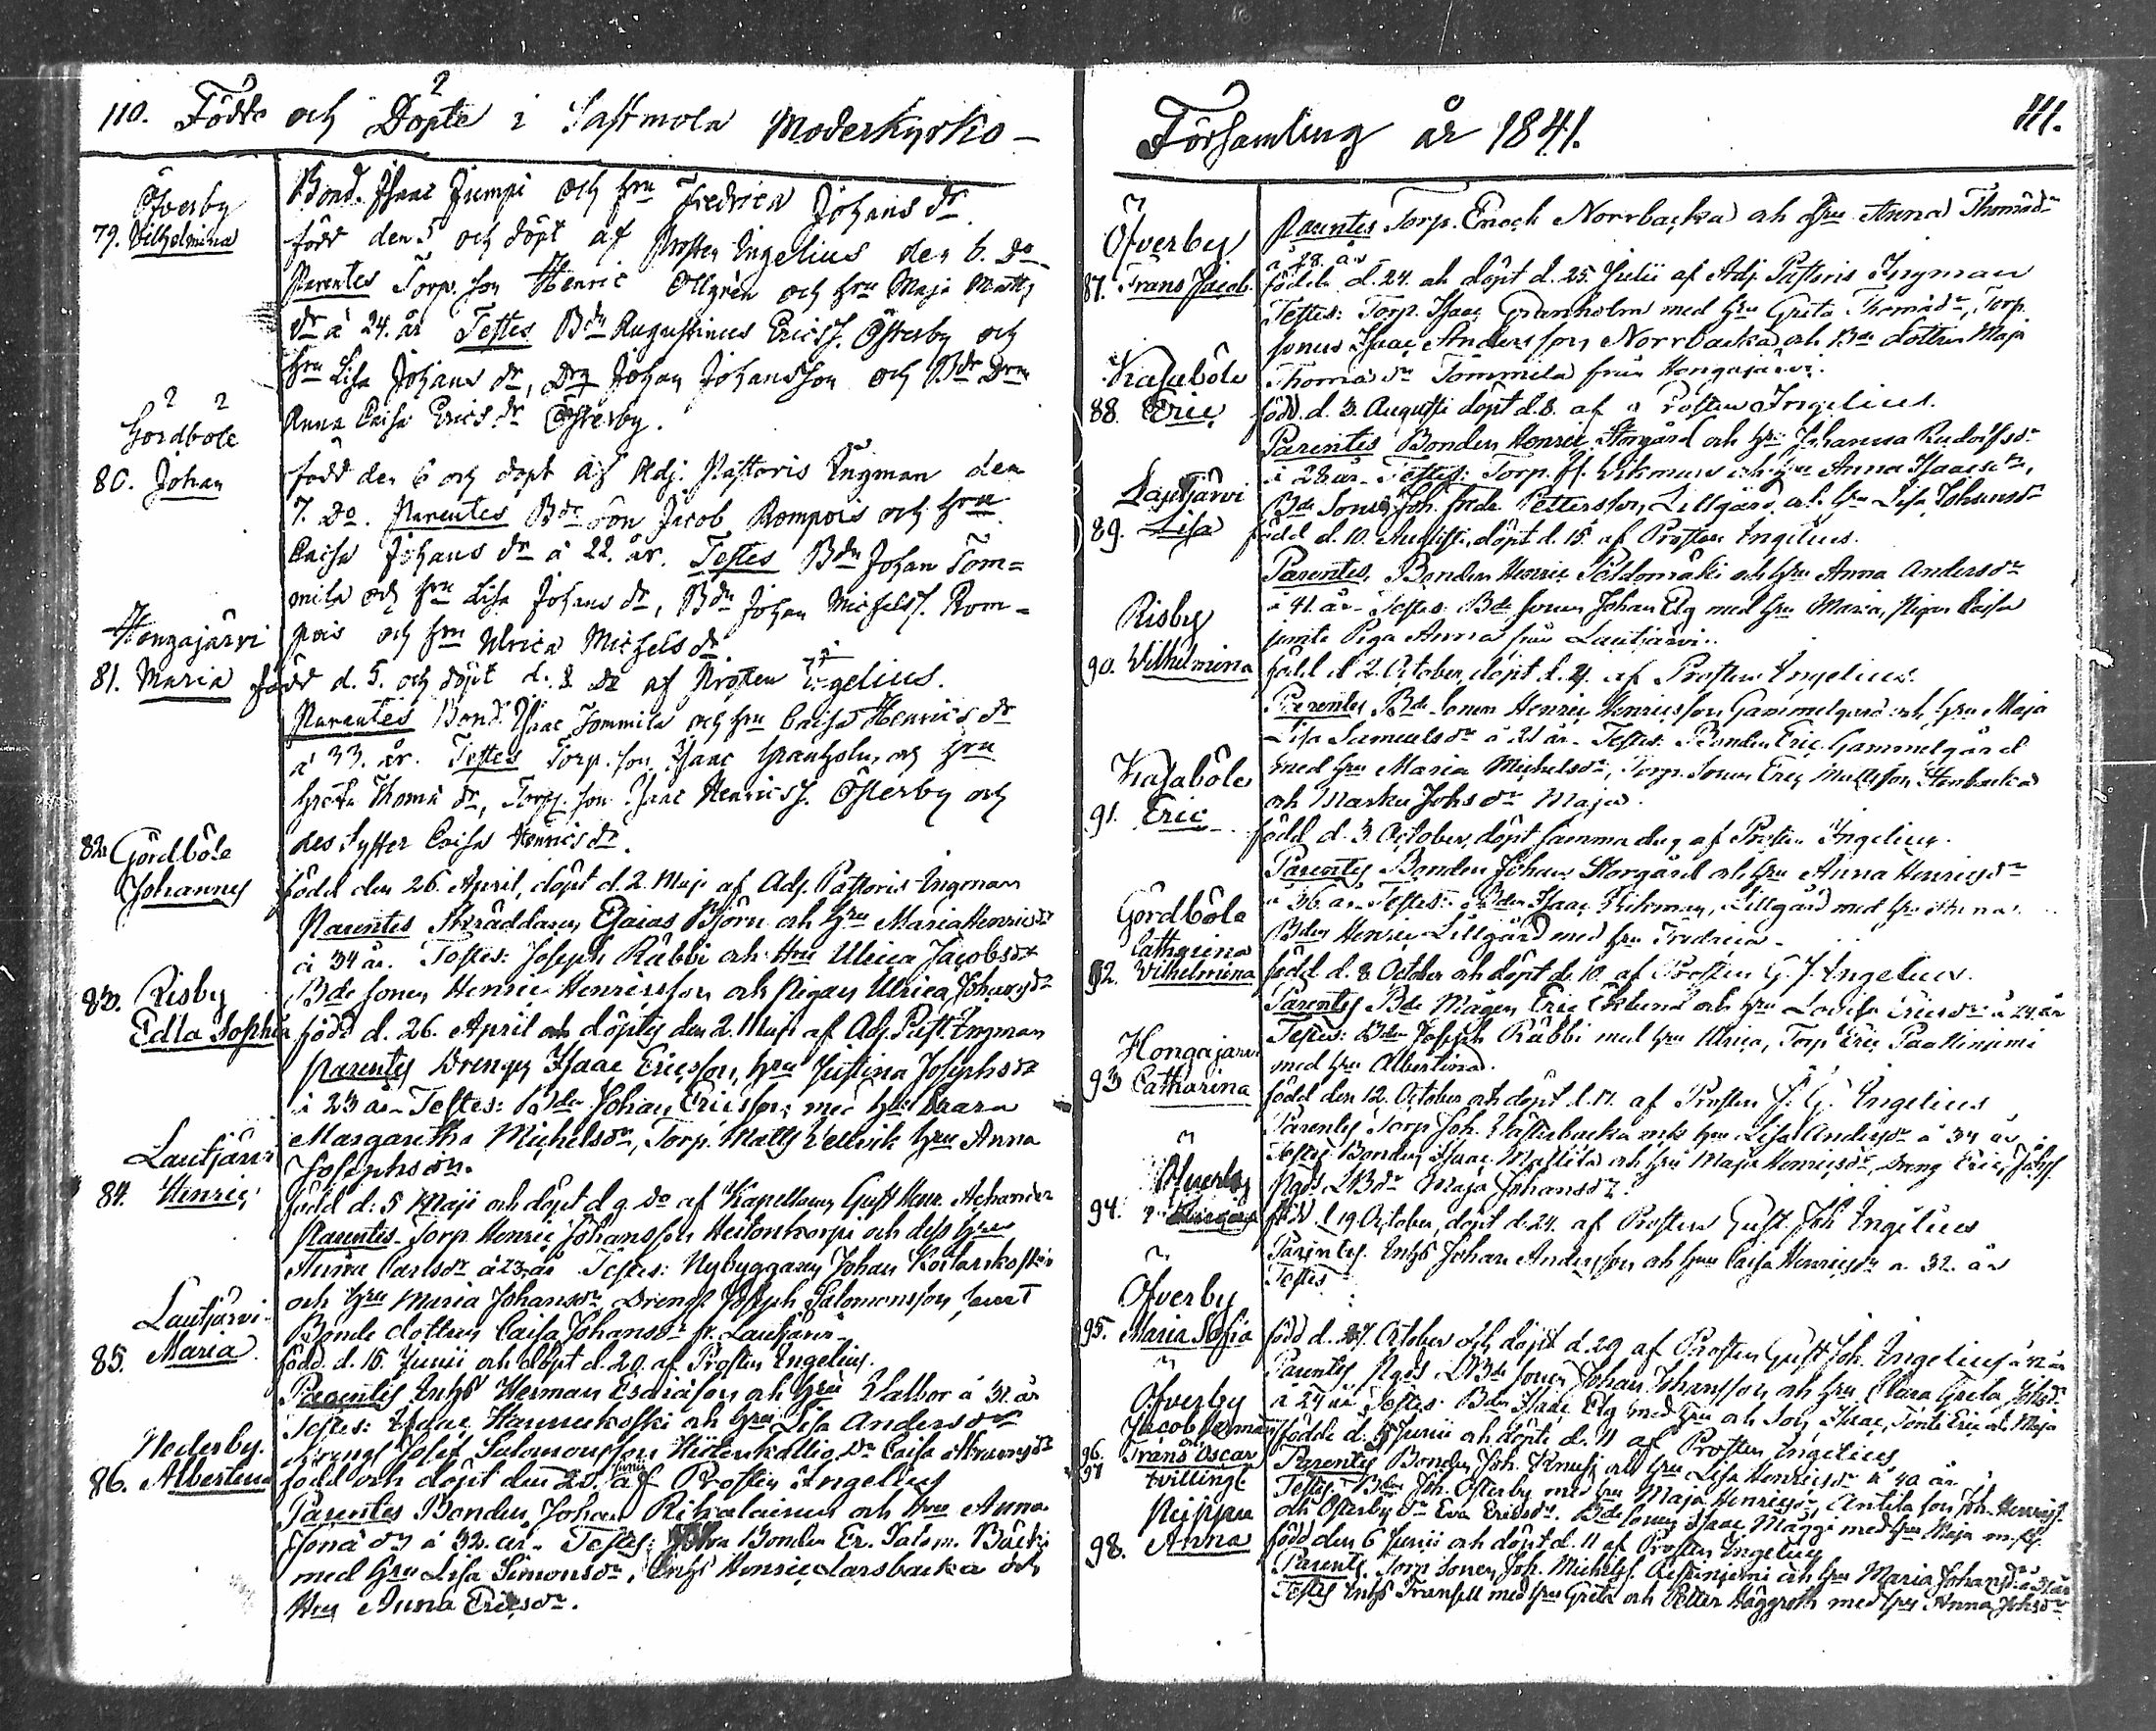 110. Födde och Döpte i Sastmola Moderkyrko-
Öfverby
79. Vilhelmina
Bond. Isaac Jumpi och hru Fredrica Johans dr
född den 5 och döpt af Prosten Ingelius den 6. do
Parentes Torp. son Henric Ollgrén och hru Maja Matts
dr à 24. år Testes Bdn Augustinus Ericss. Österby och
hru Lisa Johans dr, Drg Johan Johansson och Bdr Drn
Anna Caisa Erics dr Österby.
Gördböle
80. Johan
född den 6 och döpt af Adj. Pastoris Ingman den
7. Do. Parentes Bde Son Jacob Rompois och hru
Caisa Johans dr à 22. år. Testes Bdn Johan Tom=
mila och hru Lisa Johans dr, Bdn Johan Michelss. Rom-
pois och hru Ulrica Michels dr.
Hongajärvi
81. Maria
född d. 5. och döpt d. 8. do af Prosten Ingelius.
Parentes Bond. Isaac Tommila och hru Caisa Henrics dr
à 33. år. Testes Torp. son Isaac Granholm, och hru
Greta Thomæ dr, Torp. son Isaac Henricss. Österby och
des syster Caisa Henrics dr.
82. Gördböle
Johannes
född den 26. April, döpt d. 2. Maji af Adj. Pastoris Ingman
Parentes Skräddaren Esaias Björn och hru Maria Henricsdr
à 34 år. Testes: Joseph Räbbi och Hru Ulrica Jacobsdr
Bde sonen Henric Henricsson och Pigan Ulrica Johansdr
83. Risby
Edla Sophia
född d. 26. April och döptes den 2. Maji af Adj. Past. Ingman
Parentes Drengen Isaac Ericsson, hru Justina Josephsdr
à 23 år. Testes: Bden Johan Ericsson med hru Clara
Margaretha Michelsdr, Torp. Matts Vellvik hru Anna
Josephsdr.
Lautjärvi
84. Henric
född d. 5 Maji och döpt d 9. do af Kapellanen Gust. Henr. Achander
Parentes. Torp. Henric Johansson Heitonkorpi och dess hru
Anna Carlsdr à 23 år Testes: Nybyggaren Johan
och hru Maria Johansdr Drengs Joseph Salomonsson, samt
Bonde dottren Caisa Johansdr fr. Lautjärvi.
Lautjärvi
85. Maria
född. d. 15. Junii och döpt d. 20. af Prosten Ingelius.
Parentes Inhs Herman Esaiasson och hru Valbor à 31. år
Testes: Isaac Hannukoski och hru Lisa Andersdr
Drengs Josef Salomonsson Hidenkallio Dr Caisa
Nederby.
86. Albertina
född och döpt den 20. Junii af Prosten Ingelius
Parentes Bonden Johan Rikalainen och hru Anna
Jonæ dr à 32. år. Testes: Bonden Er. Salom. Bäcki
med hru Lisa Simonsdr, Inhs Henric Larsbacka och
Hru Anna Ericsdr.
Församling år 1841. 111.
Öfverby
87. Frans Jacob
Parentes Torp. Enoch Norrbacka och hru Anna Thomædr
à 28. år
födde d. 24. och döpt d. 25. Julii af Adj. Pastoris Ingman
Testes: Torp. Isaac Granholm med hru Greta Thomædr, Torp.
sonen Isaac Andersson Norrbacka och Bde dottren Maja
Thomædr Tommila från Hongajärvi.
Kasaböle
88. Eric
född. d. 3. Augusti döpt d. 8. af Prosten Ingelius.
Parentes Bonden Henric Storgård och hru Johanna Rudolfsdr
à 28 år. Testes: Torp. H. Vikman och hru Anna Isaacsdr,
Bde Sonen Joh. Fredr. Pettersson, Lillgård och hru Lisa Johansdr
Lautjärvi
89. Lisa
född d. 10. Augusti, döpt d. 15. af Prosten Ingelius.
Parentes. Bonden Henric Peldomäki och hru Anna Andersdr
à 41. år. Testes: Bde sonen Johan Elg med hru Maria, Pigan Caisa
jemte Piga Anna från Lautjärvi.
Risby
90. Vilhelmina
född d 2. October, döpt d. 4. af Prosten Ingelius.
Parentes Bde Sonen Henric Henricsson Gammelgård och hru Maja
Lisa Samuelsdr à 21 år. Testes: Bonden Eric Gammelgård
med hru Maria Michelsdr, Torp. Sonen Eric Mattsson Stenbacka
och Maja.
Kasaböle
91. Eric
född d. 3. October, döpt samma dag af Prosten Ingelius.
Parentes Bonden Johan Storgård och hru Anna Henricsdr
à 36 år. Testes: Bden Isaac Lillgård med hru Anna
Bden Henric Lillgård med hru Fredrica.
Gördböle
Catharina
92. Vilhelmina
född d. 8. October och döpt d. 10. af Prosten G. J. Ingelius.
Parentes Bde Mågen Eric Östlund och hru Lovisa Ericsdr à 24 år
Testes: Bden Joseph Räbbi med hru Ulrica, Torp Eric Paallinimi
med hru Albertina.
Hongajärvi
93 Catharina
född den 12. October och döpt d. 17. af Prosten J. G. Ingelius
Parentes Torp Joh. Västerbacka och hru Lisa Andersdr à 34 år
Testes Bonden Isaac Mattila och hru Maja Henricsdr, Dreng Eric Johss.
Pgds LBdr Maja Johansdr.
Öfverby
94.
född d 19. October, döpt d. 24. af Prosten Gust. Joh Ingelius
Parentes. Inhs Johan Andersson och hru Caisa Henricsdr à 32. år
Testes
Öfverby
95. Maria Sofia
född d. 27. October och döpt d. 29 af Prosten Gust Joh. Ingelius
Parentes Pgds LBde sonen Johan Johansson och hru Clara Greta Johsdr
à 24 år Testes: Bden Isaac Elg med hru och Son Isaac, Tomt Eric och Maja
Öfverby
Jacob Herman
och
96. Frans Oscar
97 tvillingl
födde d. 5 Junii och döpte d. 11 af Prosten Ingelius
Parentes Bonden Joh. och hru Lisa Henricsdr à 40 år
Testes. Bden Joh. Österby med hru Maja Henricsdr, Antila son Joh. Henricss.
och Österby Dr Eva Ericsdr. Bde sonen Isaac Mäggi med hru Maja
98. Anna
född den 6 Junii och döpt d. 11 af Prosten Ingelius
Parents. Torp sonen Joh. Michelss. och hru Maria Johansdr à 31 år
Testes Inhs Fransell med hru Greta och Petter Häggroth med hru Anna Johsdr